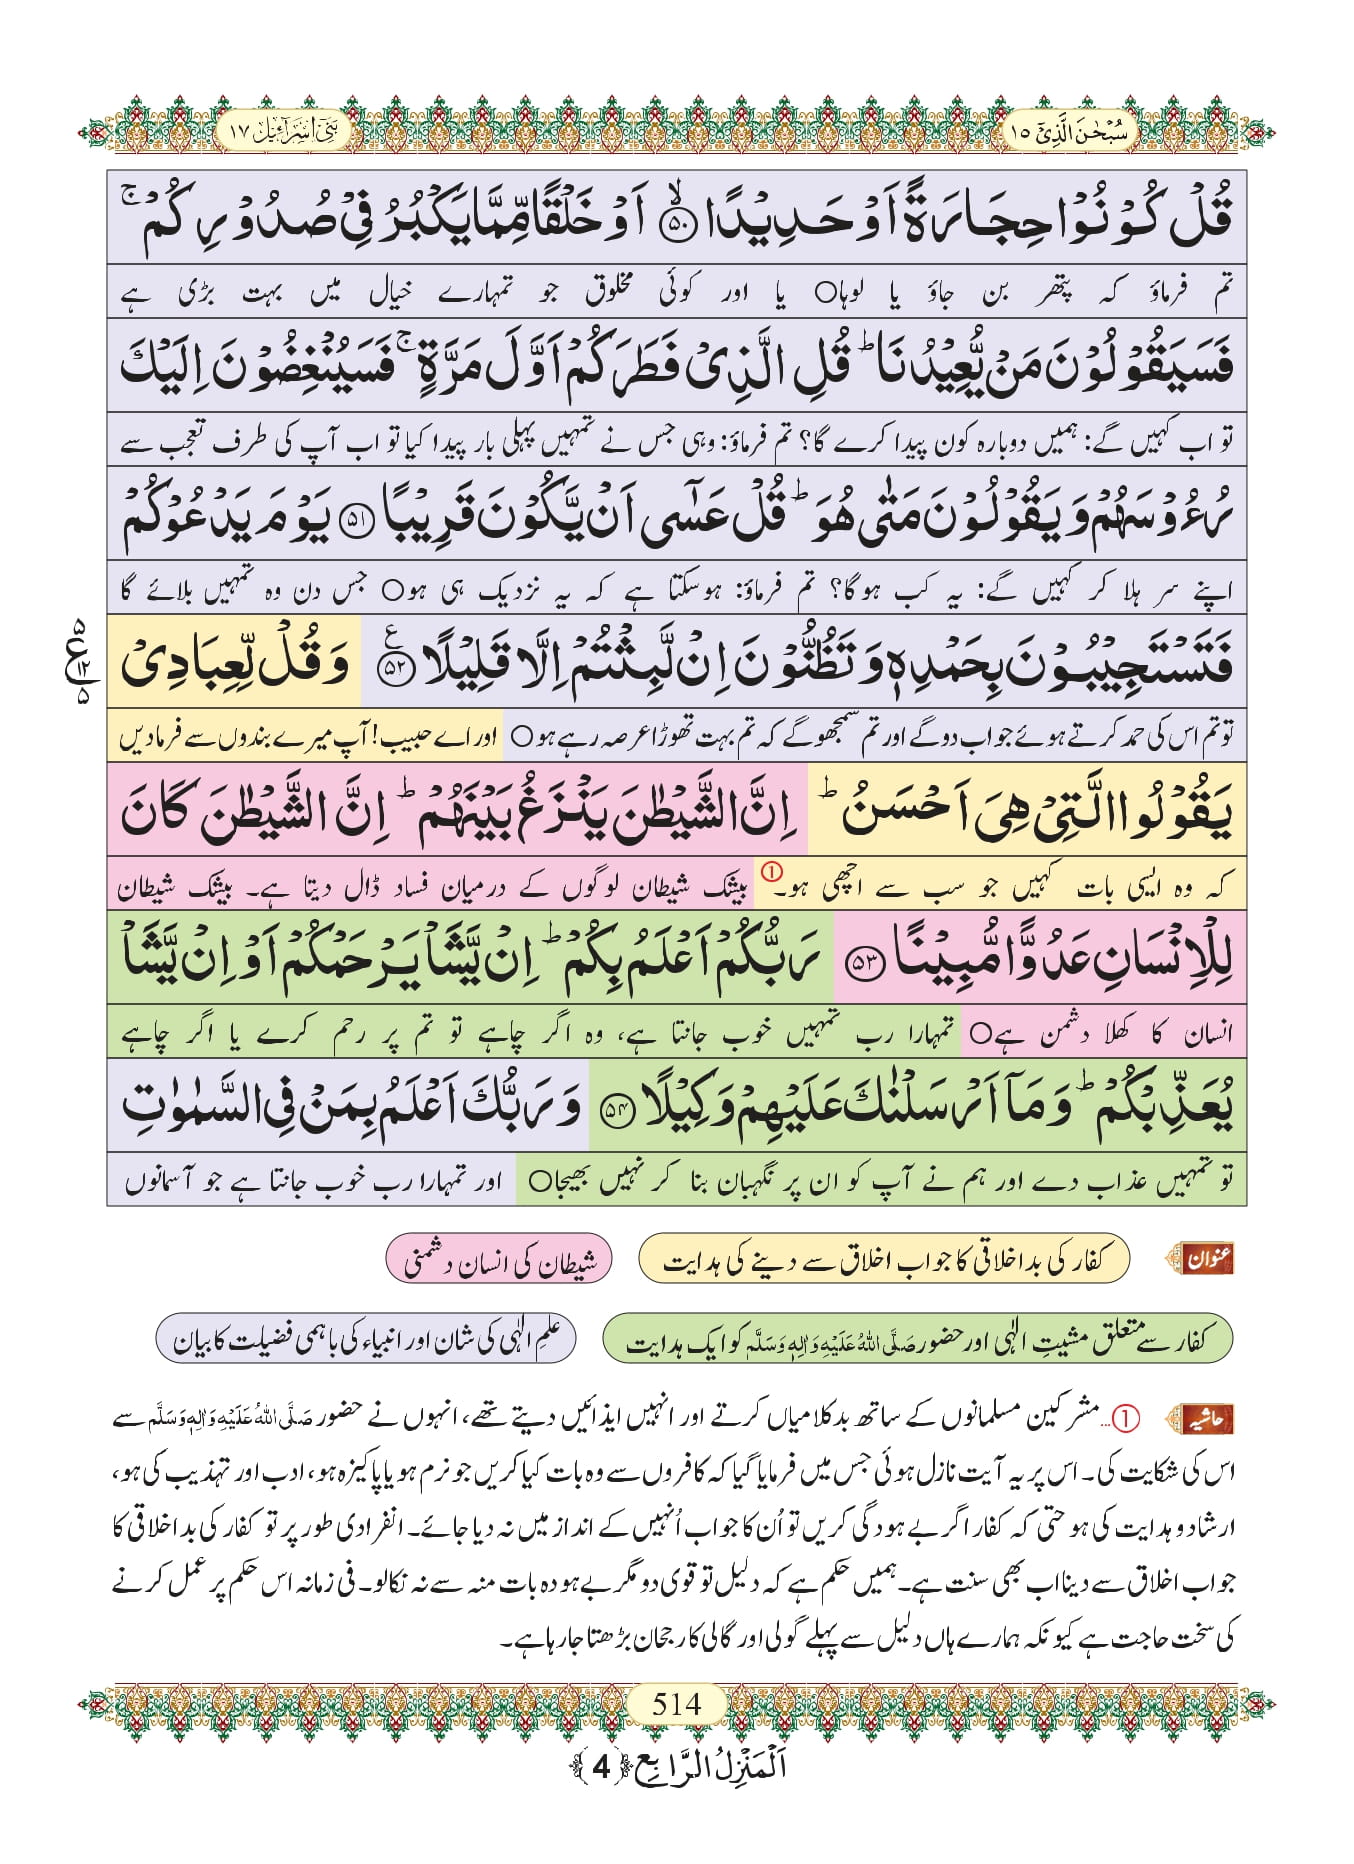 سُبْحٰنَ الَّذِیْۤ ۱۵
بَنِیْۤ اِسْرَآءِیْل ۱۷
قُلْ كُوْنُوْا حِجَارَةً اَوْ حَدِیْدًاۙ۝۵۰ اَوْ خَلْقًا مِّمَّا یَكْبُرُ فِیْ صُدُوْرِكُمْۚ
تم فرماؤ کہ پتھر بن جاؤ یا لوہا○ یا اور کوئی مخلوق جو تمہارے خیال میں بہت بڑی ہے
فَسَیَقُوْلُوْنَ مَنْ یُّعِیْدُنَاؕ قُلِ الَّذِیْ فَطَرَكُمْ اَوَّلَ مَرَّةٍۚ فَسَیُنْغِضُوْنَ اِلَیْكَ
تو اب کہیں گے: ہمیں دوبارہ کون پیدا کرے گا؟ تم فرماؤ: وہی جس نے تمہیں پہلی بار پیدا کیا تو اب آپ کی طرف تعجب سے
رُءُوْسَهُمْ وَ یَقُوْلُوْنَ مَتٰى هُوَؕ قُلْ عَسٰۤى اَنْ یَّكُوْنَ قَرِیْبًا۝۵۱ یَوْمَ یَدْعُوْكُمْ
اپنے سر ہلا کر کہیں گے: یہ کب ہوگا؟ تم فرماؤ: ہوسکتا ہے کہ یہ نزدیک ہی ہو○ جس دن وہ تمہیں بلائے گا
فَتَسْتَجِیْبُوْنَ بِحَمْدِهٖ وَ تَظُنُّوْنَ اِنْ لَّبِثْتُمْ اِلَّا قَلِیْلًا۠۝۵۲ وَ قُلْ لِّعِبَادِیْ
۵ ع ۱۲ ۵
تو تم اس کی حمد کرتے ہوئے جواب دو گے اور تم سمجھو گے کہ تم بہت تھوڑا عرصہ رہے ہو○ اور اے حبیب! آپ میرے بندوں سے فرمادیں
یَقُوْلُوا الَّتِیْ هِیَ اَحْسَنُؕ اِنَّ الشَّیْطٰنَ یَنْزَغُ بَیْنَهُمْؕ اِنَّ الشَّیْطٰنَ كَانَ
کہ وہ ایسی بات کہیں جو سب سے اچھی ہو۔① بیشک شیطان لوگوں کے درمیان فساد ڈال دیتا ہے۔ بیشک شیطان
لِلْاِنْسَانِ عَدُوًّا مُّبِیْنًا۝۵۳ رَبُّكُمْ اَعْلَمُ بِكُمْؕ اِنْ یَّشَاْ یَرْحَمْكُمْ اَوْ اِنْ یَّشَاْ
انسان کا کھلا دشمن ہے○ تمہارا رب تمہیں خوب جانتا ہے، وہ اگر چاہے تو تم پر رحم کرے یا اگر چاہے
یُعَذِّبْكُمْؕ وَ مَاۤ اَرْسَلْنٰكَ عَلَیْهِمْ وَكِیْلًا۝۵۴ وَ رَبُّكَ اَعْلَمُ بِمَنْ فِی السَّمٰوٰتِ
تو تمہیں عذاب دے اور ہم نے آپ کو ان پر نگہبان بنا کر نہیں بھیجا○ اور تمہارا رب خوب جانتا ہے جو آسمانوں
عنوان کفار کی بداخلاقی کا جواب اخلاق سے دینے کی ہدایت شیطان کی انسان دشمنی
کفار سے متعلق مشیتِ الٰہی اور حضور صَلَّی اللهُ عَلَیْهِ وَاٰلِهٖ وَسَلَّم کو ایک ہدایت علمِ الٰہی کی شان اور انبیاء کی باہمی فضیلت کا بیان
حاشیہ ①...مشرکین مسلمانوں کے ساتھ بدکلامیاں کرتے اور انہیں ایذائیں دیتے تھے، انہوں نے حضور صَلَّی اللهُ عَلَیْهِ وَاٰلِهٖ وَسَلَّم سے
اس کی شکایت کی۔ اس پر یہ آیت نازل ہوئی جس میں فرمایا گیا کہ کافروں سے وہ بات کیا کریں جو نرم ہو یا پاکیزہ ہو، ادب اور تہذیب کی ہو،
ارشاد و ہدایت کی ہو حتی کہ کفار اگر بے ہودگی کریں تو اُن کا جواب اُنہیں کے انداز میں نہ دیا جائے۔ انفرادی طور پر تو کفار کی بداخلاقی کا
جواب اخلاق سے دینا اب بھی سنت ہے۔ ہمیں حکم ہے کہ دلیل تو قوی دو مگر بے ہودہ بات منہ سے نہ نکالو۔ فی زمانہ اس حکم پر عمل کرنے
کی سخت حاجت ہے کیونکہ ہمارے ہاں دلیل سے پہلے گولی اور گالی کا رجحان بڑھتا جارہا ہے۔
514
اَلْمَنْزِلُ الرَّابِع ﴿4﴾